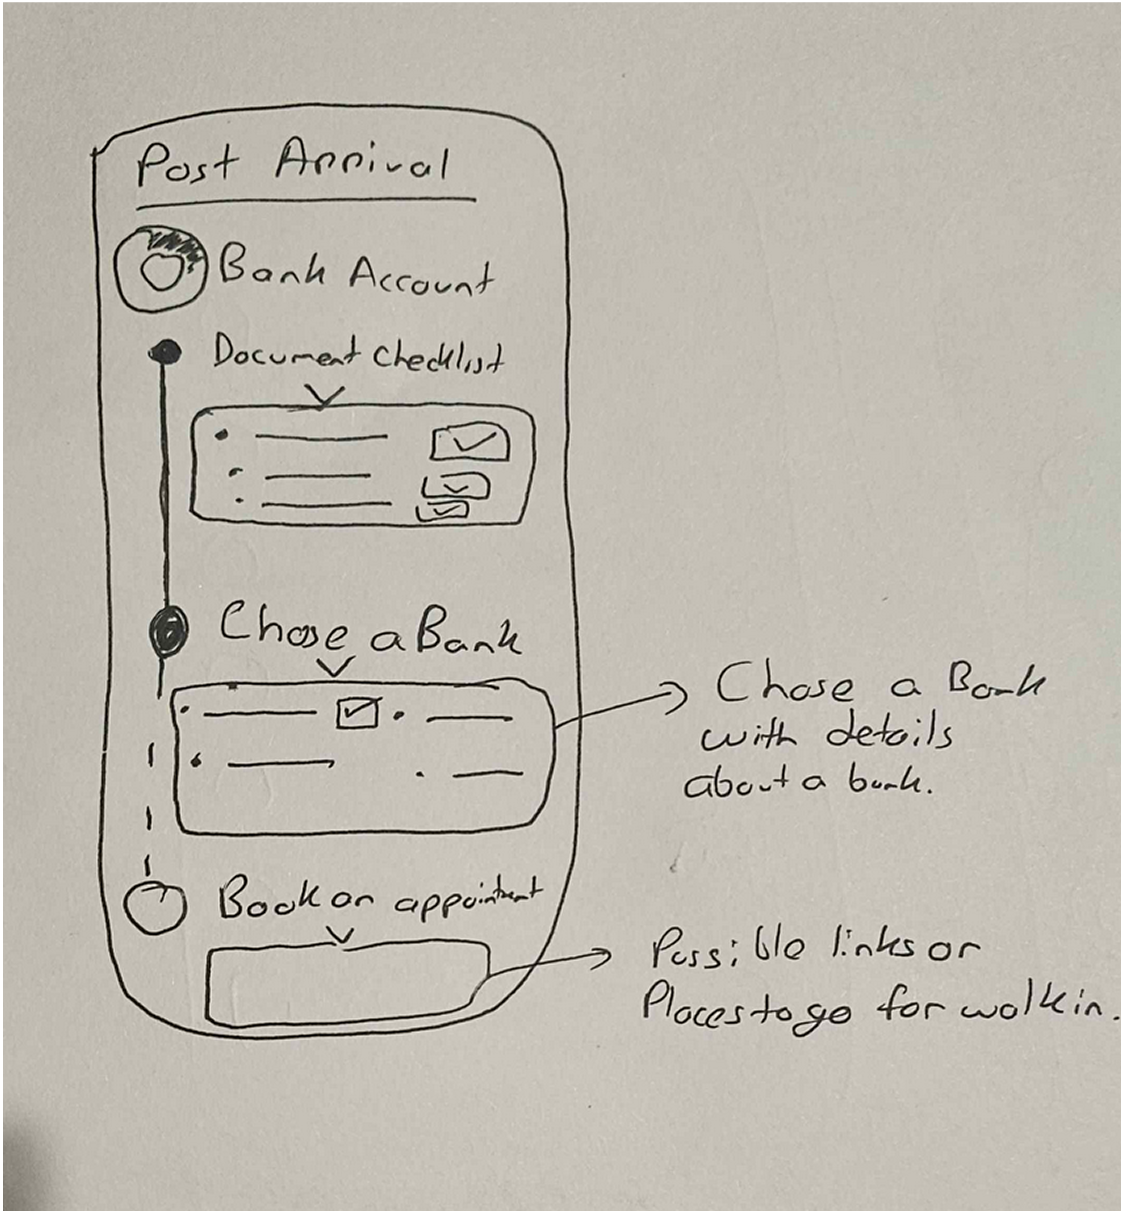 Post Arrival
Bank Account
Document Checklist
Chose a Bank
Chose a Bank
with details
about a bank.
Book an appointment
Possible links or
Places to go for walk in.